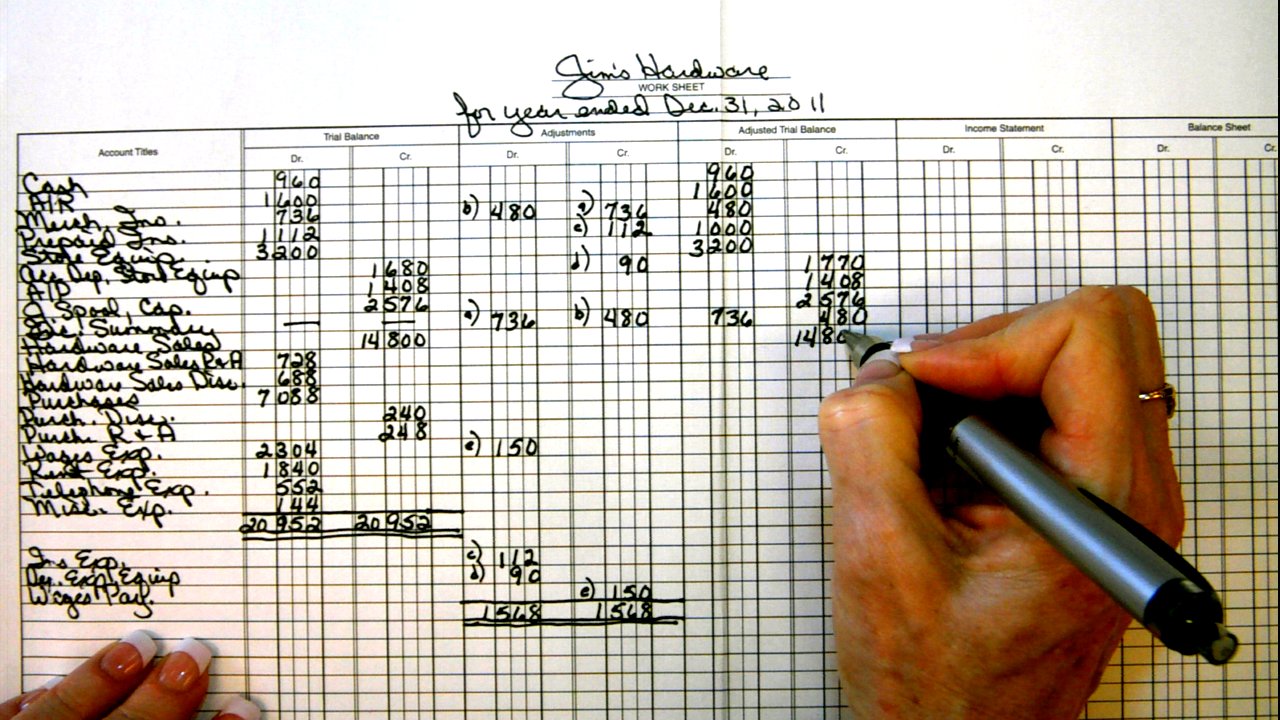 Jim's Hardware
WORK SHEET
for year ended Dec. 31, 2011
Account Titles Trial Balance Adjustments Adjusted Trial Balance Income Statement Balance Sheet
Dr. Cr. Dr. Cr. Dr. Cr. Dr. Cr. Dr. Cr.
Cash 960 960
A/R 1600 1600
Merch. Ins. 736 b) 480 a) 736 480
Prepaid Ins. 1112 c) 112 1000
Store Equip. 3200 3200
Acc. Dep. Store Equip 1680 d) 90 1770
A/P 1408 1408
Spool, Cap. 2576 2576
Summary — — a) 736 b) 480 736 480
Hardware Sales 14800 1480
Hardware Sales R&A 728
Hardware Sales Disc. 688
Purchases 7088
Purch. Disc. 240
Purch. R & A 248
Wages Exp. 2304 e) 150
Rent Exp. 1840
Telephone Exp. 552
Misc. Exp. 144
20952 20952
Ins. Exp. c) 112
Dep. Exp. Equip d) 90
Wages Pay. e) 150
1568 1568